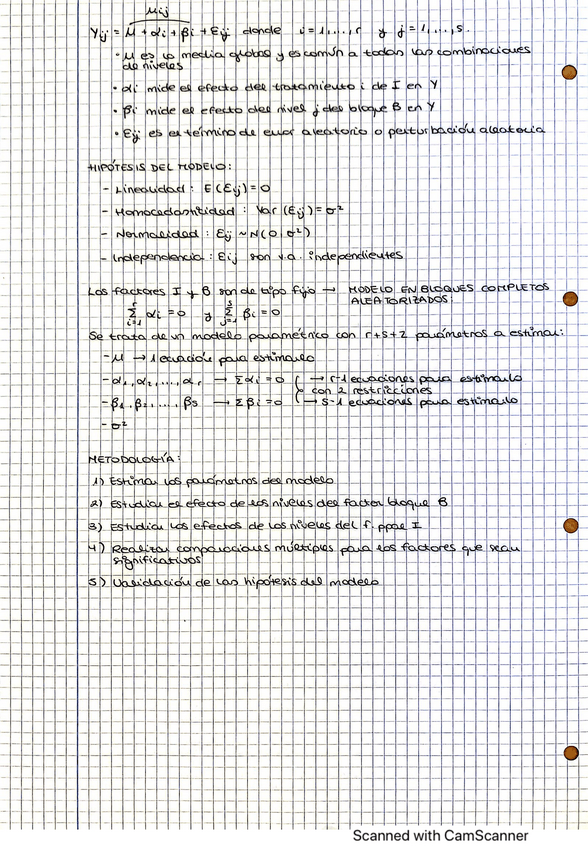 μij
Yij = μ + αi + βi + εij donde i = 1,...,r y j = 1,...,s.
· μ es la media global y es común a todas las combinaciones
de niveles
· αi mide el efecto del tratamiento i de I en Y
· βi mide el efecto del nivel j del bloque B en Y
· εij es el término de error aleatorio o perturbación aleatoria
HIPÓTESIS DEL MODELO:
- Linealidad : E(εij) = 0
- Homocedasticidad : Var (εij) = σ²
- Normalidad : εij ~ N(0, σ²)
- Independencia : εij son v.a. independientes
Los factores I y B son de tipo fijo → MODELO EN BLOQUES COMPLETOS
ALEATORIZADOS:
r Σ i=1 αi = 0 y s Σ j=1 βi = 0
Se trata de un modelo paramétrico con r+s+2 parámetros a estimar:
- μ → 1 ecuación para estimarlo
- α1, α2, ..., αr → Σαi = 0 → r-1 ecuaciones para estimarlo
con 2 restricciones
- β1, β2, ..., βs → Σβi = 0 → s-1 ecuaciones para estimarlo
- σ²
METODOLOGÍA:
1) Estimar los parámetros del modelo
2) Estudiar el efecto de los niveles del factor bloque B
3) Estudiar los efectos de los niveles del f. ppal I
4) Realizar comparaciones múltiples para los factores que sean
significativos
5) Validación de las hipótesis del modelo
Scanned with CamScanner